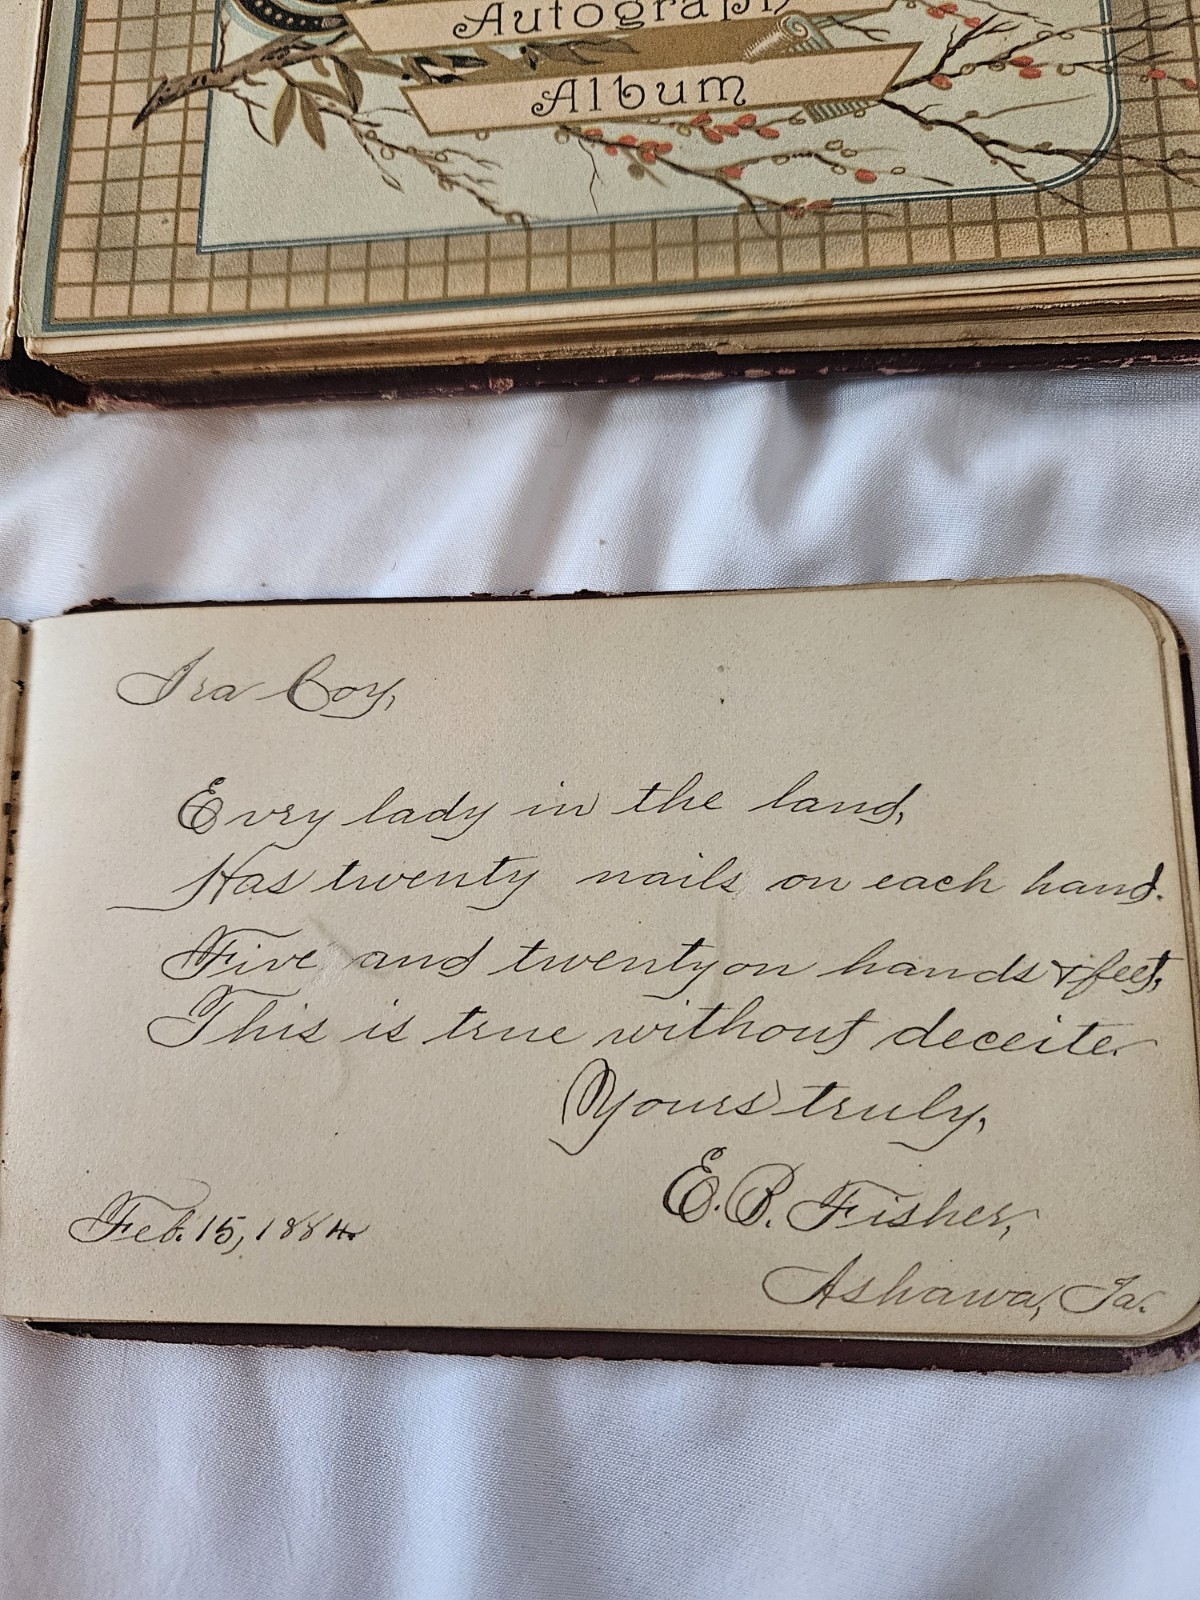 Autograph
Album
Ira Coy,
Evry lady in the land,
Has twenty nails on each hand.
Five and twenty on hands & feet,
This is true without deceite.
Yours truly,
E. B. Fisher,
Feb. 15, 1884.
Ashawa, Ia.